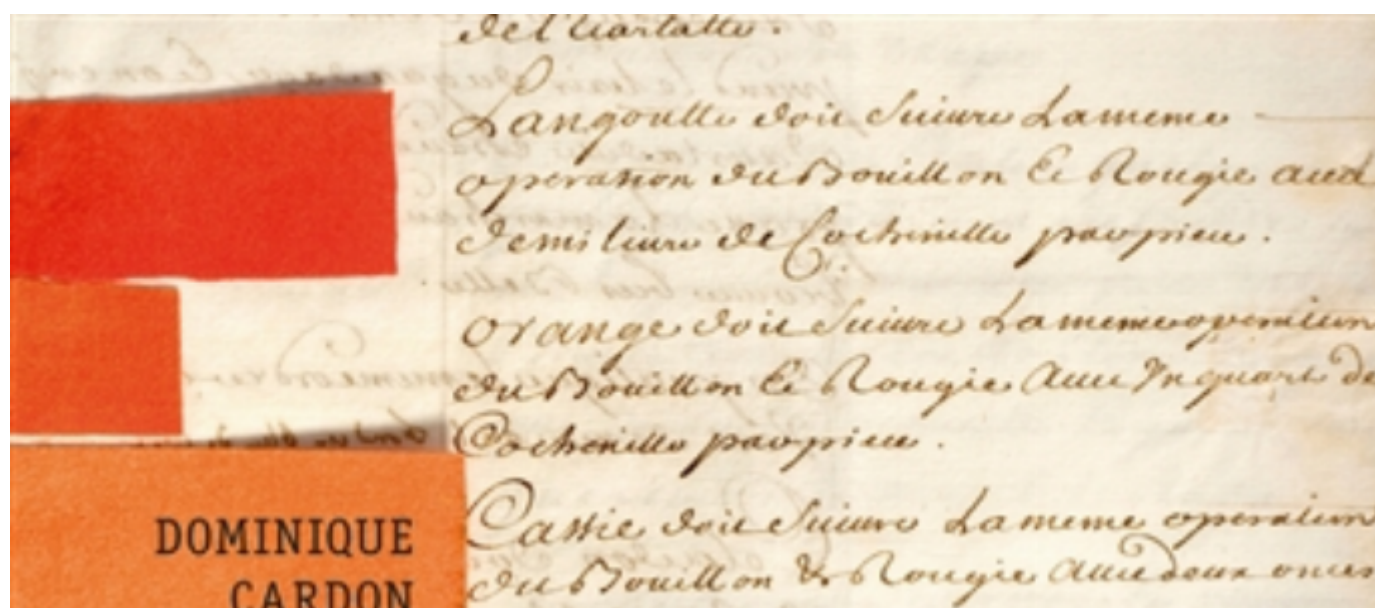 de l'Ecarlatte.
Langoutte doit Suivre La meme
operation du Bouillon & Rougie avec
demi livre de Cochenille par piece.
orange doit Suivre La meme operation
du Bouillon & Rougie Avec Un quart de
Cochenille par piece.
Cassie doit Suivre La meme operation
du Bouillon & Rougie Avec deux onces
DOMINIQUE
CARDON